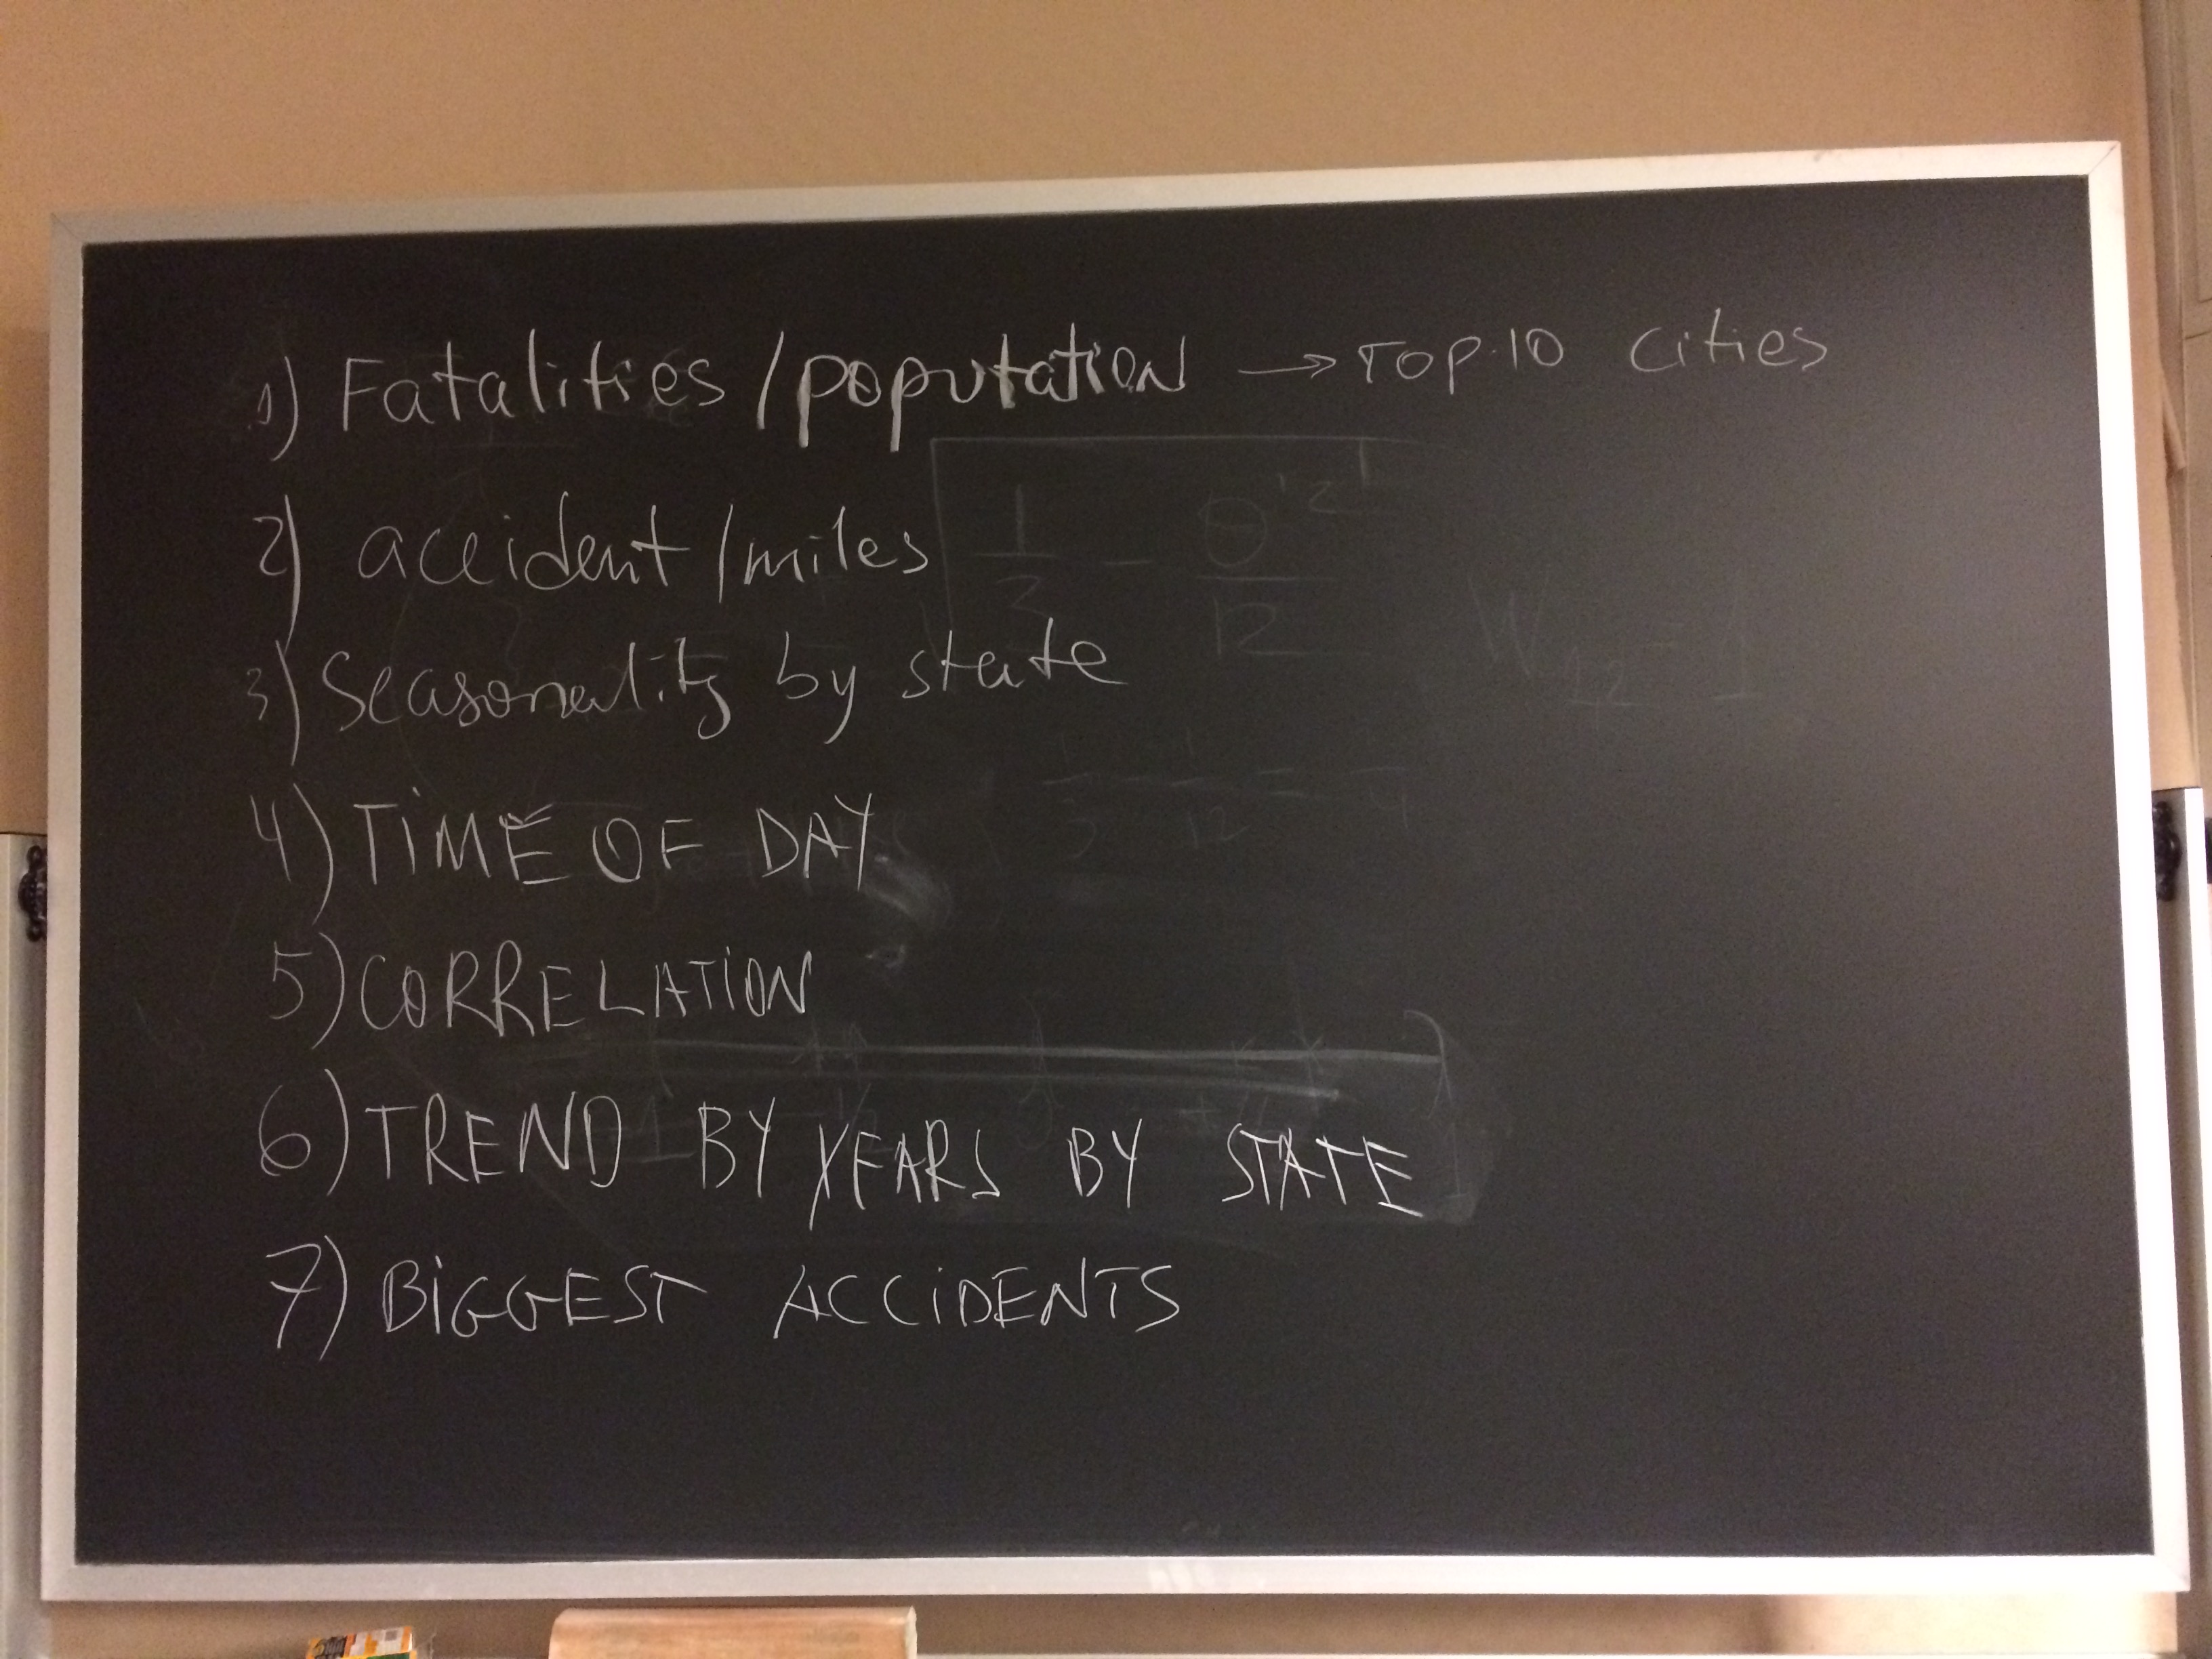 1) Fatalities/population → TOP 10 cities
2) accident/miles
3) Seasonality by state
4) TiME OF DAY
5) CORRELATiON
6) TREND BY YEARS BY STATE
7) BiGGEST ACCiDENTS